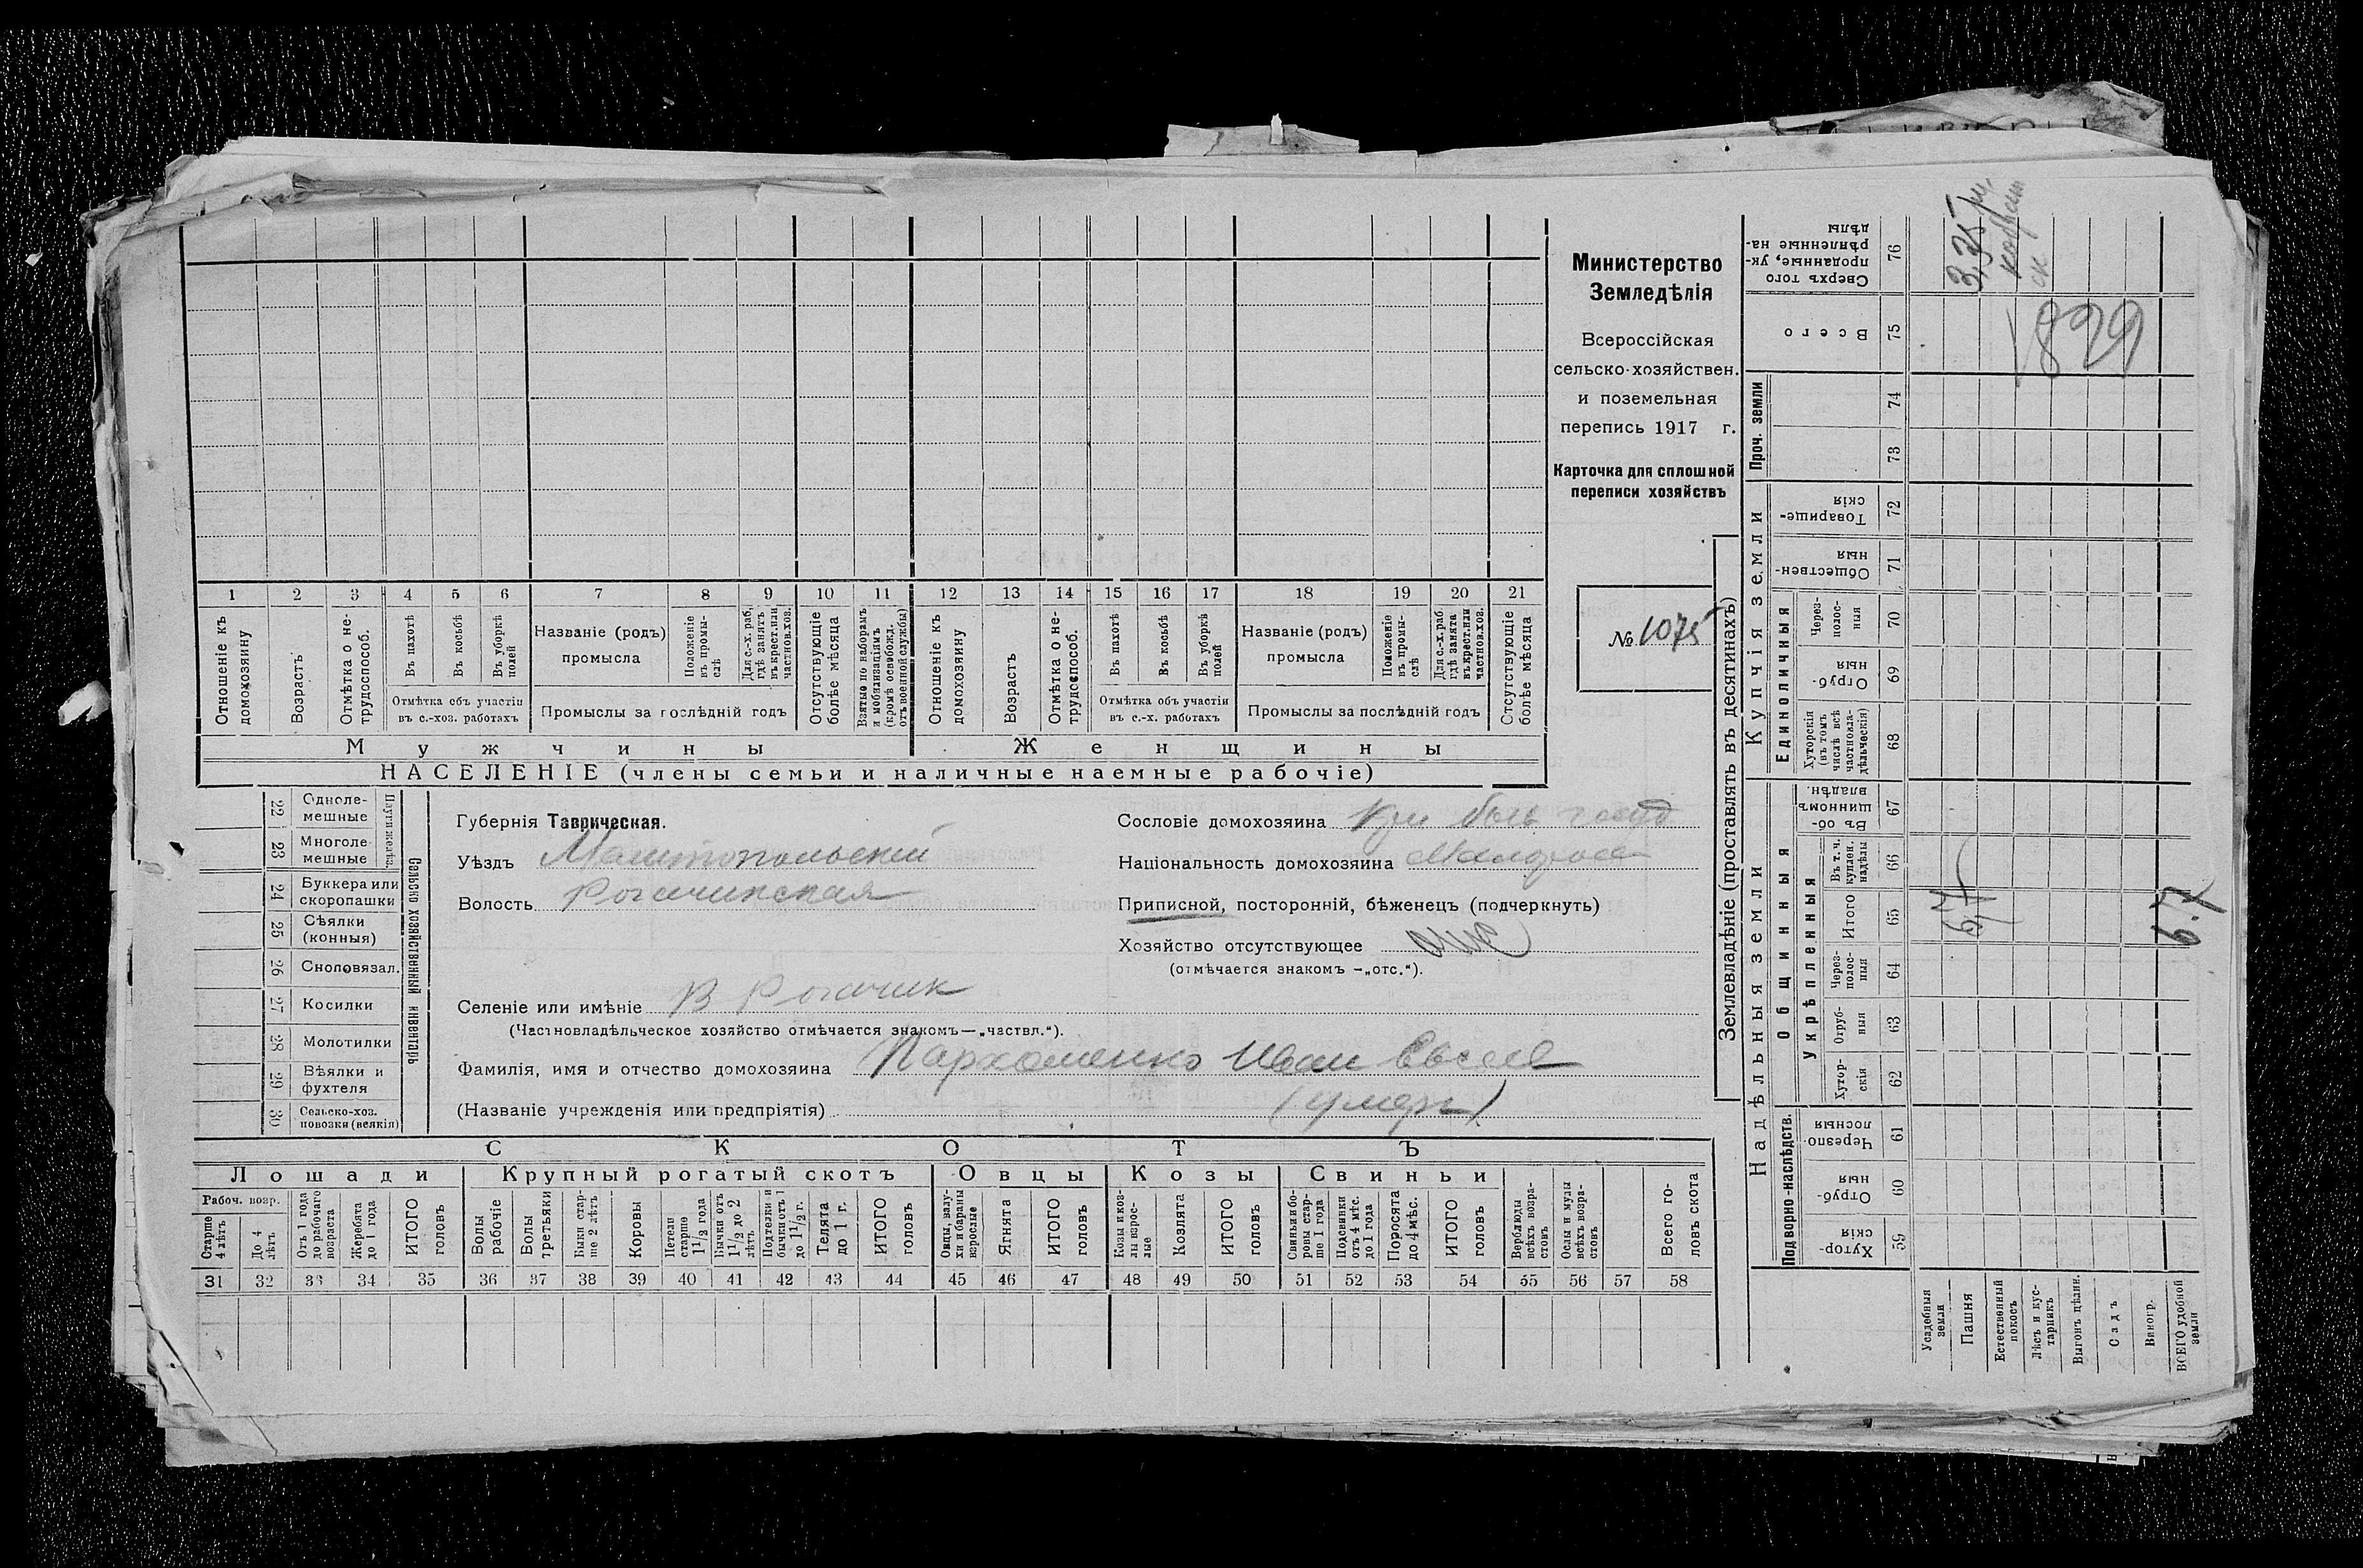 Министерство
Земледѣлія
Всероссійская
сельско-хозяйствен.
и поземельная
перепись 1917 г.
Карточка для сплошной
переписи хозяйствъ
№ 1075
1 2 3 4 5 6 7 8 9 10 11 12 13 14 15 16 17 18 19 20 21
Отношеніе къ домохозяину
Возрастъ
Отмѣтка о не-трудоспособ.
Въ пахотѣ
Въ косьбѣ
Въ уборкѣ полей
Отмѣтка объ участіи въ с.-хоз. работахъ
Названіе (родъ) промысла
Положеніе въ промы-слѣ
Для с.-х. раб, гдѣ занятъ въ крест. или частнов. хоз.
Промыслы за послѣдній годъ
Отсутствующіе болѣе мѣсяца
Взятые по наборамъ и мобилизаціямъ (кромѣ освобожд. отъ военной службы)
Отношеніе къ домохозяину
Возрастъ
Отмѣтка о не-трудоспособ.
Въ пахотѣ
Въ косьбѣ
Въ уборкѣ полей
Отмѣтка объ участіи въ с.-х. работахъ
Названіе (родъ) промысла
Положеніе въ промы-слѣ
Для с.-х. раб. гдѣ занята въ крест. или частнов. хоз.
Промыслы за послѣдній годъ
Отсутствующіе болѣе мѣсяца
Мужчины Женщины
НАСЕЛЕНІЕ (члены семьи и наличные наемные рабочіе)
22 Одноле-мешные
23 Многоле-мешные
Плуги желѣз.
24 Буккера или скоропашки
25 Сѣялки (конныя)
26 Сноповязал.
27 Косилки
28 Молотилки
29 Вѣялки и фухтеля
30 Сельско-хоз. повозки (всякія)
Сельско хозяйственный инвентарь
Губернія Таврическая.
Уѣздъ Мелитопольский
Волость Рогачинская
Селеніе или имѣніе В Рогачик
(Частновладѣльческое хозяйство отмѣчается знакомъ—„частвл.“).
Фамилія, имя и отчество домохозяина Пархоменко Иван
(Названіе учрежденія или предпріятія) (умер)
Сословіе домохозяина
Національность домохозяина Малорос
Приписной, посторонній, бѣженецъ (подчеркнуть)
Хозяйство отсутствующее
(отмѣчается знакомъ —„отс.“).
СКОТЪ
Лошади Крупный рогатый скотъ Овцы Козы Свиньи
Рабоч. возр.
Старше 4 лѣтъ
До 4 лѣтъ
Отъ 1 года до рабочаго возраста
Жеребята до 1 года
ИТОГО головъ
Волы рабочіе
Волы третьяки
Быки стар-ше 2 лѣтъ
Коровы
Нетели старше 1½ года
Бычки отъ 1½ до 2 лѣтъ
Подтелки и бычки отъ 1 до 1½ г.
Телята до 1 г.
ИТОГО головъ
Овцы, валу-хи и бараны взрослые
Ягнята
ИТОГО головъ
Козы и коз-лы взрос-лые
Козлята
ИТОГО головъ
Свиньи и бо-ровы стар-ше 1 года
Подсвинки отъ 4 мѣс. до 1 года
Поросята до 4 мѣс.
ИТОГО головъ
Верблюды всѣхъ возра-стовъ
Ослы и мулы всѣхъ возра-стовъ
Всего го-ловъ скота
31 32 33 34 35 36 37 38 39 40 41 42 43 44 45 46 47 48 49 50 51 52 53 54 55 56 57 58
Землевладѣніе (проставлять въ десятинахъ)
Надѣльныя земли
Купчія земли
Проч. земли
Подворно-наслѣдств.
Общинныя
Укрѣпленныя
Единоличныя
Хутор-скія 59
Отруб-ныя 60
Черезпо-лосныя 61
Хутор-скія 62
Отруб-ныя 63
Через-полос-ныя 64
Итого 65
Въ т. ч. куплен. надѣлы 66
Въ об-щинномъ владѣн. 67
Хуторскія (въ томъ числѣ всѣ частновла-дѣльческія) 68
Отруб-ныя 69
Через-полос-ныя 70
Обществен-ныя 71
Товарище-скія 72
73
74
Всего 75
Сверхъ того проданные, ук-рѣпленные на-дѣлы 76
Усадебныя земли
Пашня
Естественный покосъ
Лѣсъ и кус-тарникъ
Выгонъ цѣлин.
Садъ
Виногр.
ВСЕГО удобной земли
6,7
6.7
3,35
829